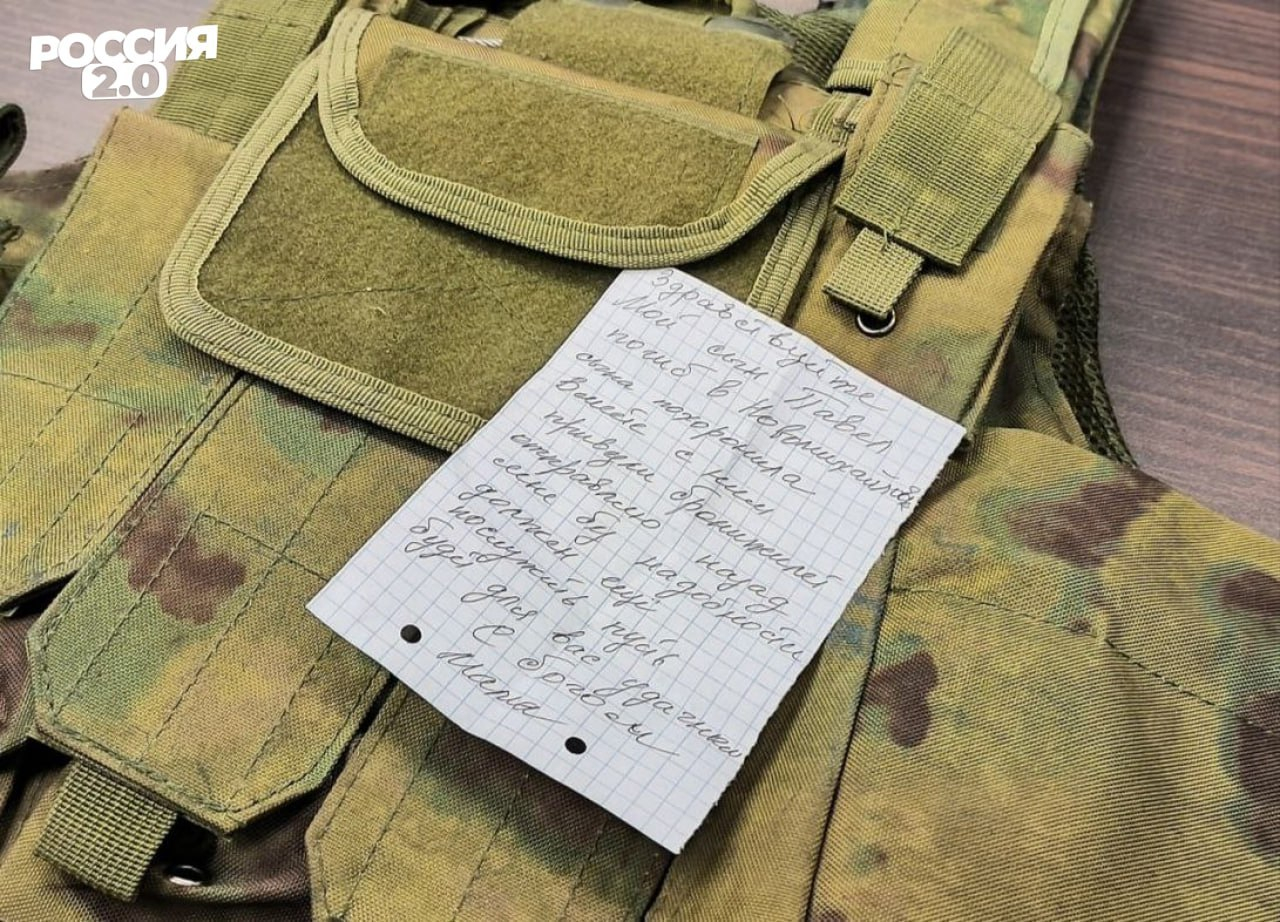 РОССИЯ
2.0
Здравствуйте
Мой сын Павел
погиб в Новомихайловк
сына похоронила
Вместе с ним
привезли бронижилет
отправляю назад
мне б надобности
должен ещё
послужить пусть
будет для вас удачным
С богом
Мама